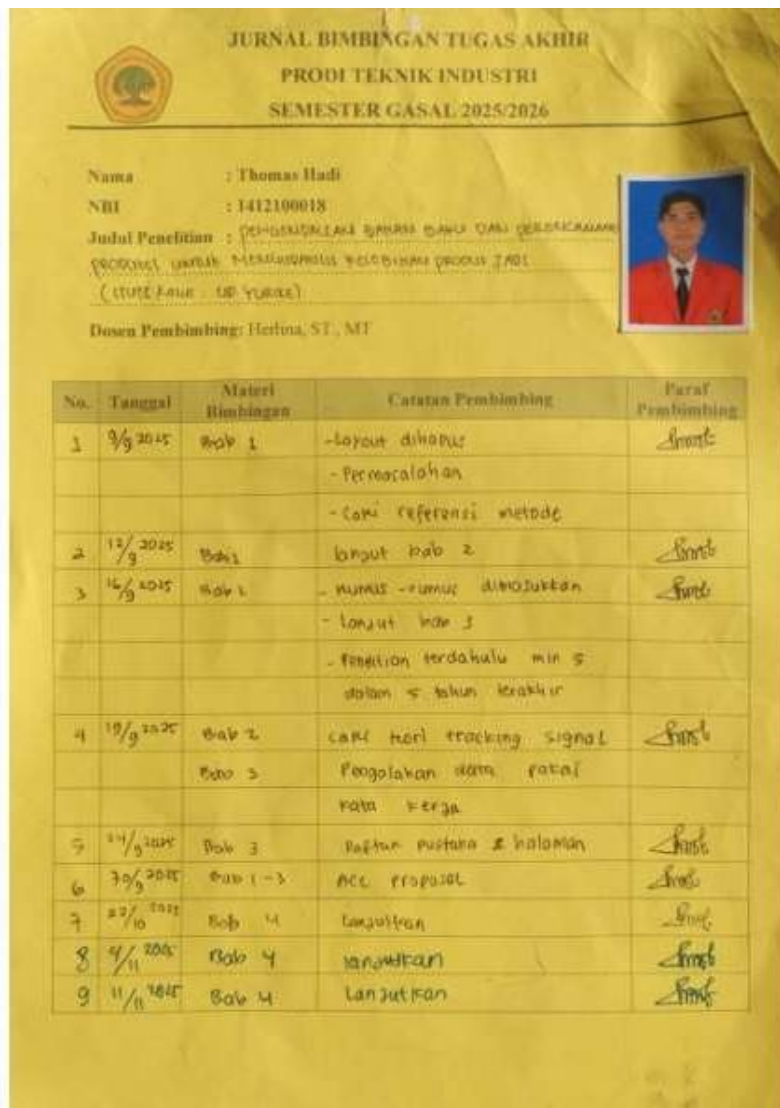 JURNAL BIMBINGAN TUGAS AKHIR
PRODI TEKNIK INDUSTRI
SEMESTER GASAL 2025/2026
Nama : Thomas Hadi
NBI : 1412100018
Judul Penelitian : PENGENDALIAN BAHAN BAKU DAN PERENCANAAN
PRODUKSI UNTUK KELEBIHAN PRODUK JADI
(STUDI KASUS : UD
Dosen Pembimbing: Herlina, ST., MT
No. Tanggal Materi Bimbingan Catatan Pembimbing Paraf Pembimbing
1 9/9 2025 Bab 1 -Layout dihapus
- Permasalahan
- Cari referensi metode
2 12/9 2025 Bab 1 lanjut bab 2
3 16/9 2025 Bab 2 - rumus -rumus dimasukkan
- Lanjut bab 3
- Penelitian terdahulu min 5
dalam 5 tahun terakhir
4 19/9 2025 Bab 2 cari teori tracking signal
Bab 3 Pengolahan data pakai
kata kerja
5 24/9 2025 Bab 3 Daftar pustaka & halaman
6 30/9 2025 Bab 1-3 ACC proposal
7 22/10 2025 Bab 4 Lanjutkan
8 4/11 2025 Bab 4 lanjutkan
9 11/11 2025 Bab 4 Lanjutkan